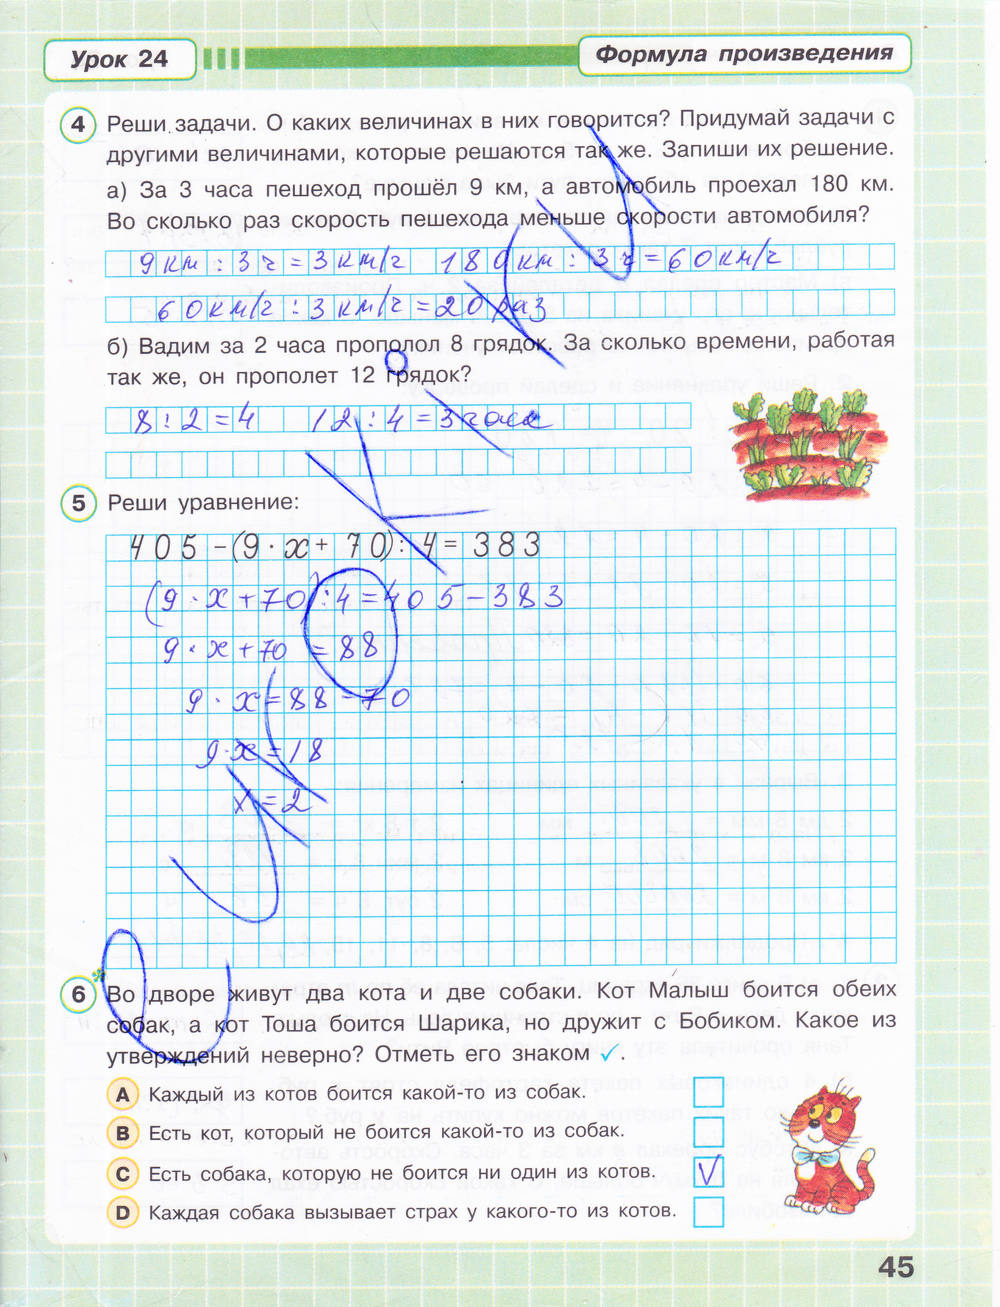 Урок 24
Формула произведения
4 Реши задачи. О каких величинах в них говорится? Придумай задачи с
другими величинами, которые решаются так же. Запиши их решение.
а) За 3 часа пешеход прошёл 9 км, а автомобиль проехал 180 км.
Во сколько раз скорость пешехода меньше скорости автомобиля?
9 км : 3 ч = 3 км/ч 180 км : 3 ч = 60 км/ч
60 км/ч : 3 км/ч = 20 раз
б) Вадим за 2 часа прополол 8 грядок. За сколько времени, работая
так же, он прополет 12 грядок?
8 : 2 = 4 12 : 4 = 3 часа
5 Реши уравнение:
405 - (9 · x + 70) : 4 = 383
(9 · x + 70) : 4 = 405 - 383
9 · x + 70 = 88
9 · x = 88 - 70
9 · x = 18
x = 2
6 Во дворе живут два кота и две собаки. Кот Малыш боится обеих
собак, а кот Тоша боится Шарика, но дружит с Бобиком. Какое из
утверждений неверно? Отметь его знаком ✓.
A Каждый из котов боится какой-то из собак.
B Есть кот, который не боится какой-то из собак.
C Есть собака, которую не боится ни один из котов. V
D Каждая собака вызывает страх у какого-то из котов.
45